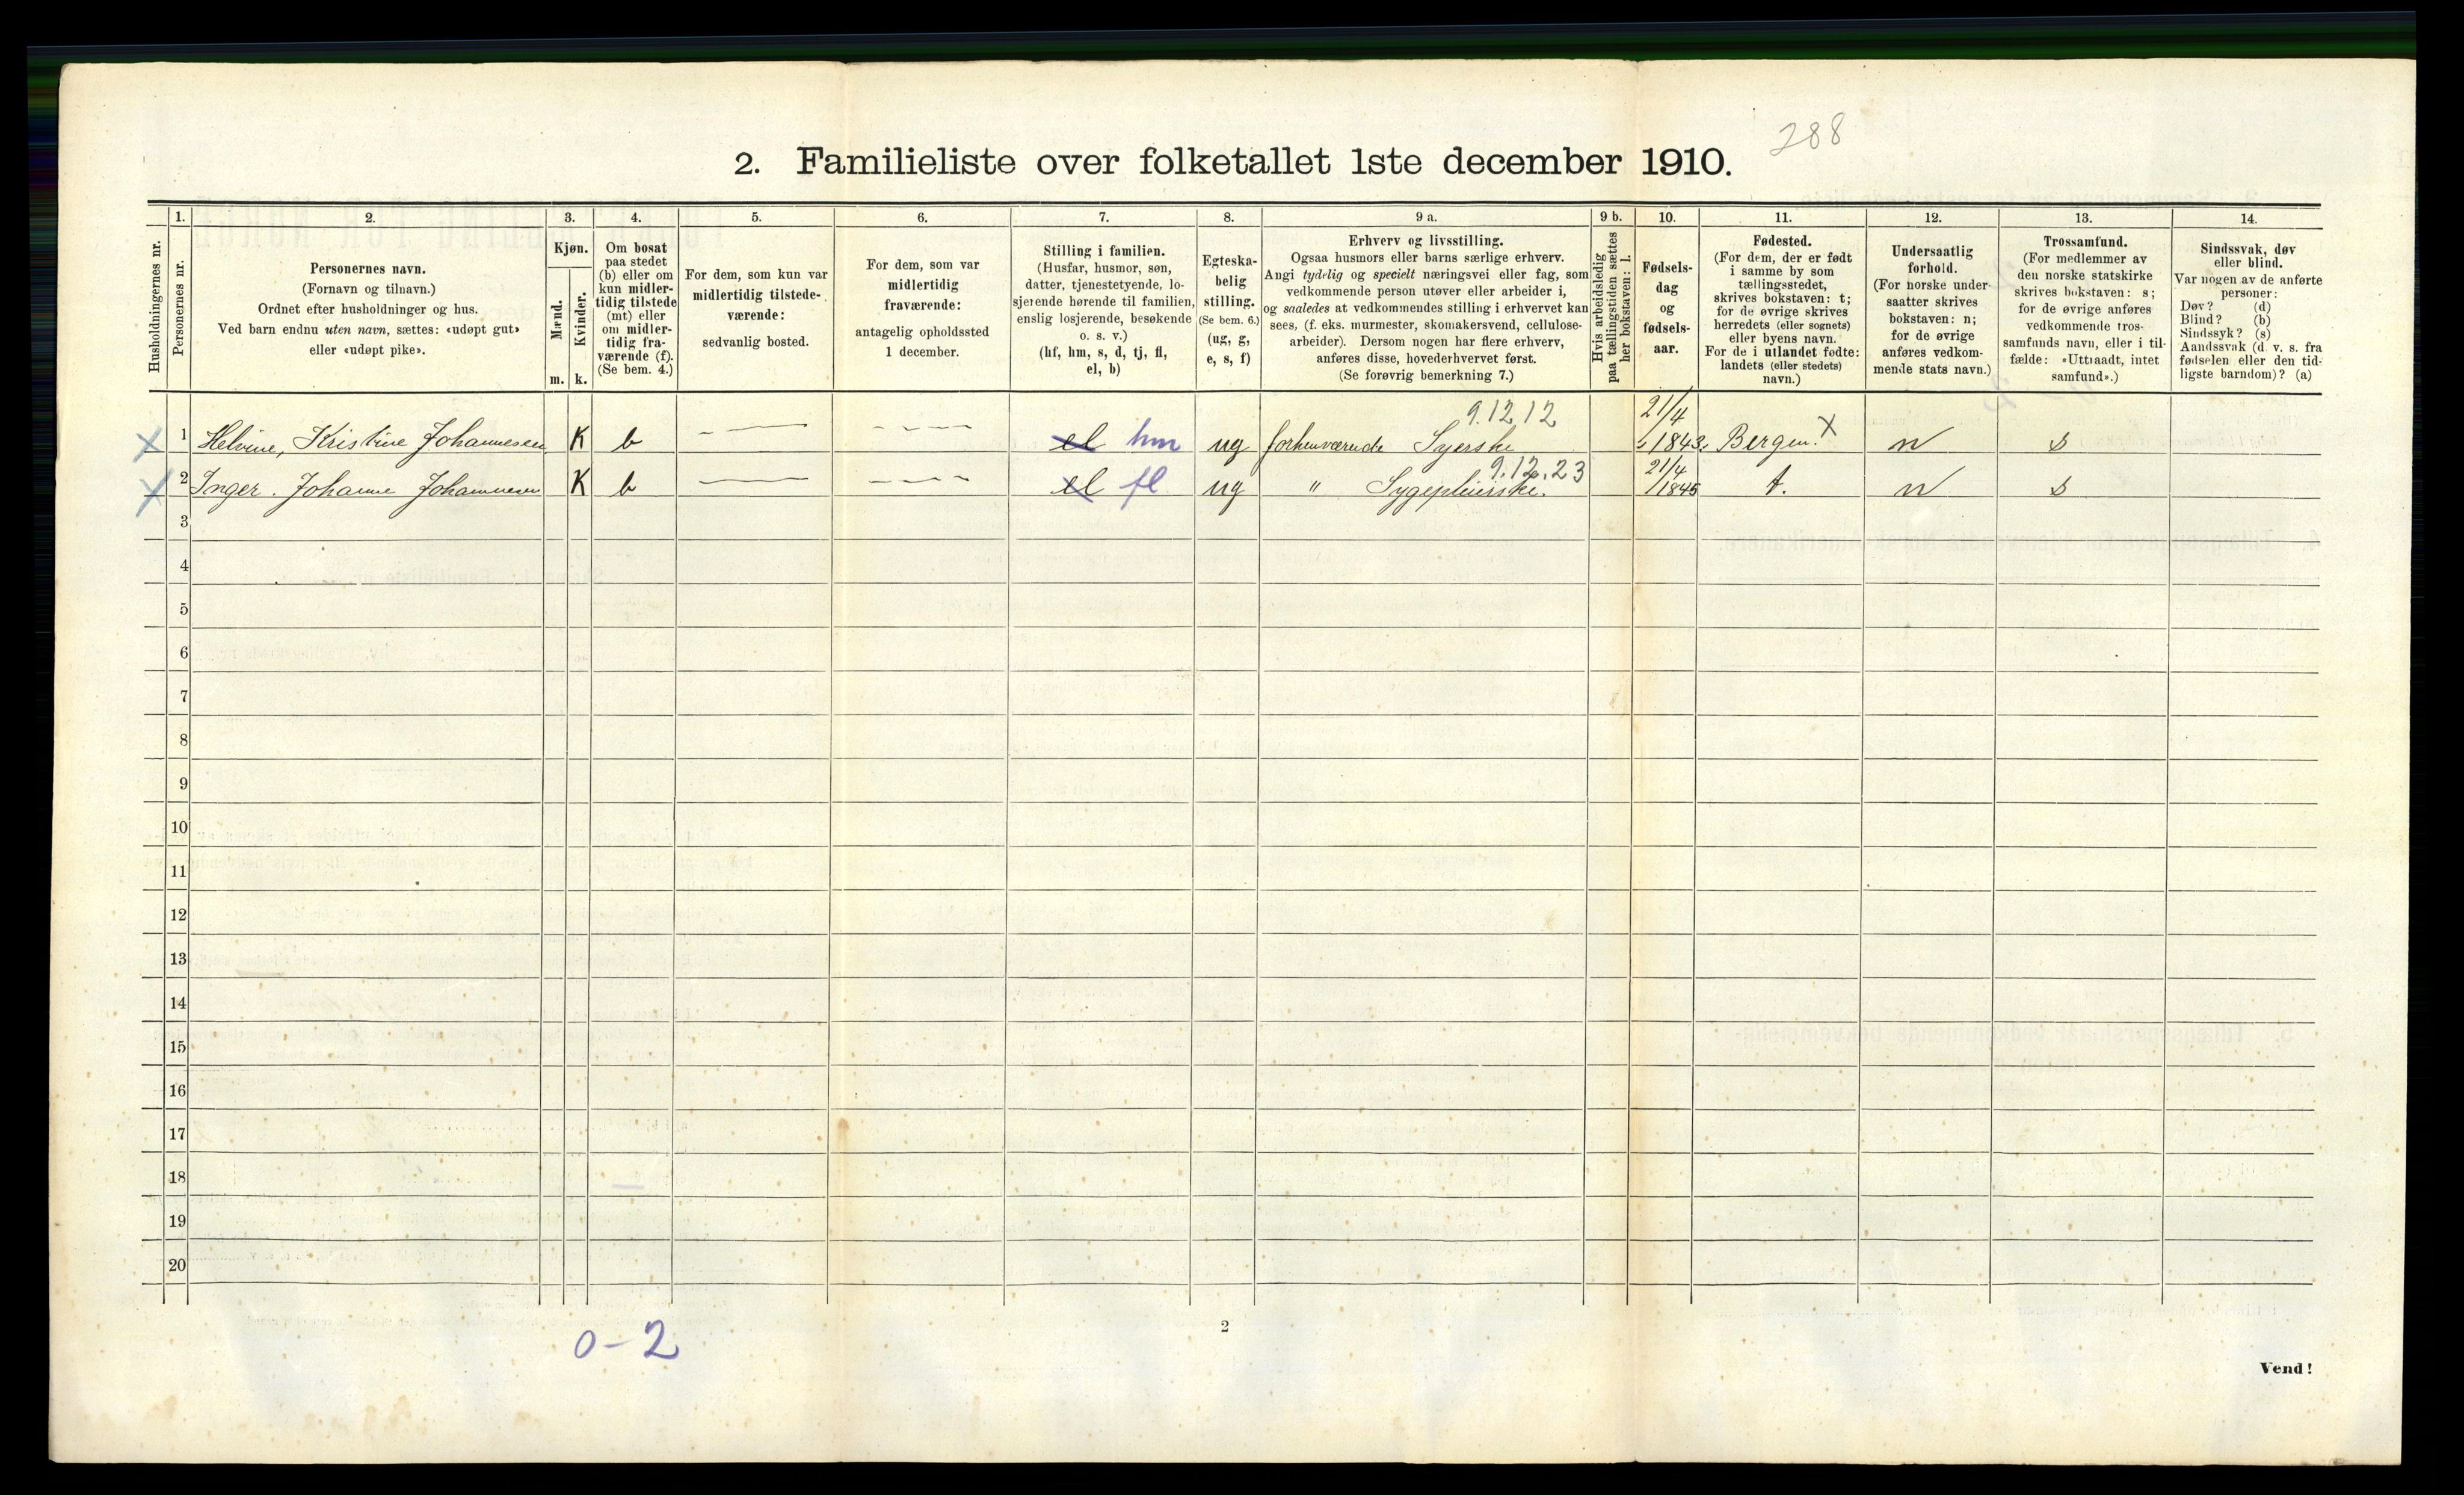 288
2. Familieliste over folketallet 1ste december 1910.
Husholdningernes nr.
1.
Personernes nr.
2.
Personernes navn.
(Fornavn og tilnavn.)
Ordnet efter husholdninger og hus.
Ved barn endnu uten navn, sættes: «udøpt gut»
eller «udøpt pike».
3.
Kjøn.
Mænd.
Kvinder.
m.
k.
4.
Om bosat
paa stedet
(b) eller om
kun midler-
tidig tilstede
(mt) eller
om midler-
tidig fra-
værende (f).
(Se bem. 4.)
5.
For dem, som kun var
midlertidig tilstede-
værende:
sedvanlig bosted.
6.
For dem, som var
midlertidig
fraværende:
antagelig opholdssted
1 december.
7.
Stilling i familien.
(Husfar, husmor, søn,
datter, tjenestetyende, lo-
sjerende hørende til familien,
enslig losjerende, besøkende
o. s. v.)
(hf, hm, s, d, tj, fl,
el, b)
8.
Egteska-
belig
stilling.
(Se bem. 6.)
(ug, g,
e, s, f)
9 a.
Erhverv og livsstilling.
Ogsaa husmors eller barns særlige erhverv.
Angi tydelig og specielt næringsvei eller fag, som
vedkommende person utøver eller arbeider i,
og saaledes at vedkommendes stilling i erhvervet kan
sees, (f. eks. murmester, skomakersvend, cellulose-
arbeider). Dersom nogen har flere erhverv,
anføres disse, hovederhvervet først.
(Se forøvrig bemerkning 7.)
9 b.
Hvis arbeidsledig
paa tællingstiden sættes
her bokstaven: l.
10.
Fødsels-
dag
og
fødsels-
aar.
11.
Fødested.
(For dem, der er født
i samme by som
tællingsstedet,
skrives bokstaven: t;
for de øvrige skrives
herredets (eller sognets)
eller byens navn.
For de i utlandet fødte:
landets (eller stedets)
navn.)
12.
Undersaatlig
forhold.
(For norske under-
saatter skrives
bokstaven: n;
for de øvrige
anføres vedkom-
mende stats navn.)
13.
Trossamfund.
(For medlemmer av
den norske statskirke
skrives bokstaven: s;
for de øvrige anføres
vedkommende tros-
samfunds navn, eller i til-
fælde: «Uttraadt, intet
samfund».)
14.
Sindssvak, døv
eller blind.
Var nogen av de anførte
personer:
Døv? (d)
Blind? (b)
Sindssyk? (s)
Aandssvak (d. v. s. fra
fødselen eller den tid-
ligste barndom)? (a)
9.12 12 21/4
X 1 Helvine, Kristine Johannesen K b — - - - el hm ug forhenværende Syerske 1843. Bergen. X n s
9.12.23 21/4
X 2 Inger. Johanne Johannesen K b — - - - el fl ug " Sygepleierske. 1845 t. n s
3
4
5
6
7
8
9
10
11
12
13
14
15
16
17
18
19
20
0-2
2
Vend!